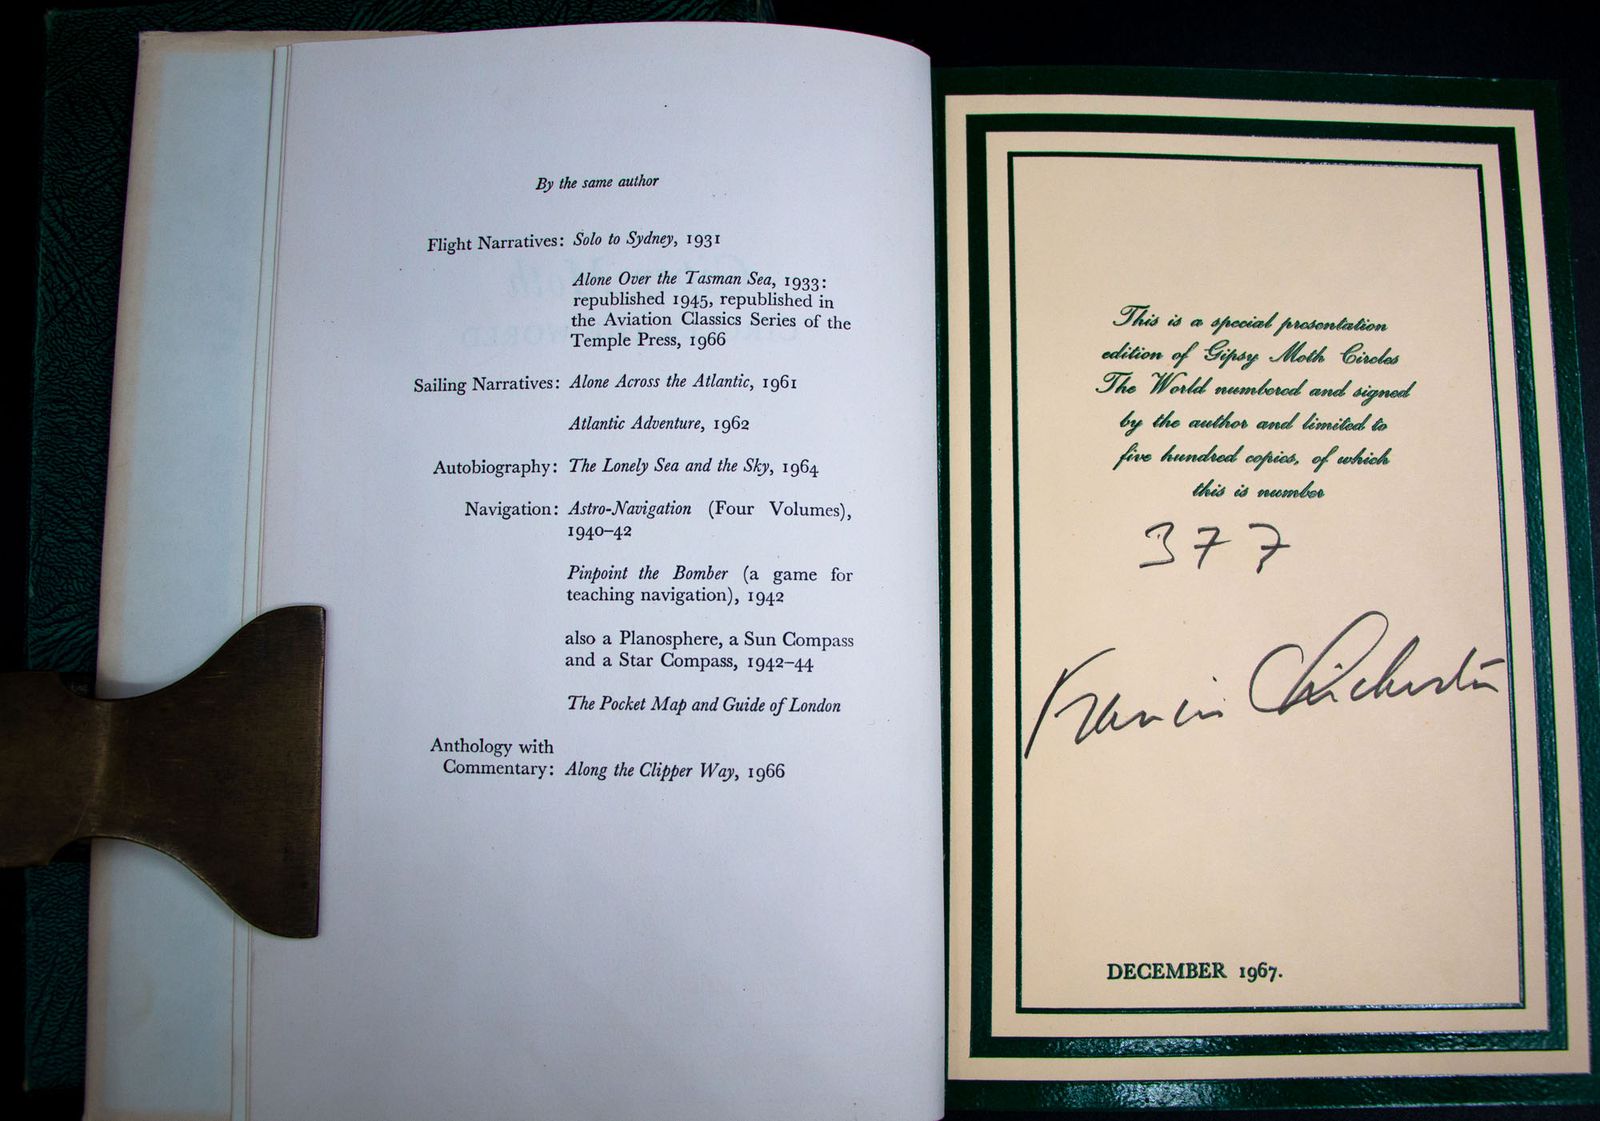 By the same author
Flight Narratives: Solo to Sydney, 1931
Alone Over the Tasman Sea, 1933:
republished 1945, republished in
the Aviation Classics Series of the
Temple Press, 1966
Sailing Narratives: Alone Across the Atlantic, 1961
Atlantic Adventure, 1962
Autobiography: The Lonely Sea and the Sky, 1964
Navigation: Astro-Navigation (Four Volumes),
1940–42
Pinpoint the Bomber (a game for
teaching navigation), 1942
also a Planosphere, a Sun Compass
and a Star Compass, 1942–44
The Pocket Map and Guide of London
Anthology with
Commentary: Along the Clipper Way, 1966
This is a special presentation
edition of Gipsy Moth Circles
The World numbered and signed
by the author and limited to
five hundred copies, of which
this is number
377
Francis Chichester
DECEMBER 1967.